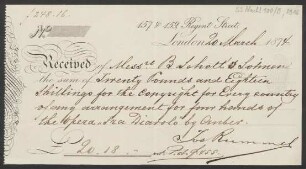 157 & 159 Regent Street,
London 20 March 1874
No
Received of Messrs B. Schott's Söhnen
the sum of Twenty Pounds and Eighteen
Shillings for the Copyright for Every country
of my arrangement for four hands of
the Opera Fra Diavolo by Auber.
Jos Rummel
£20.18.-